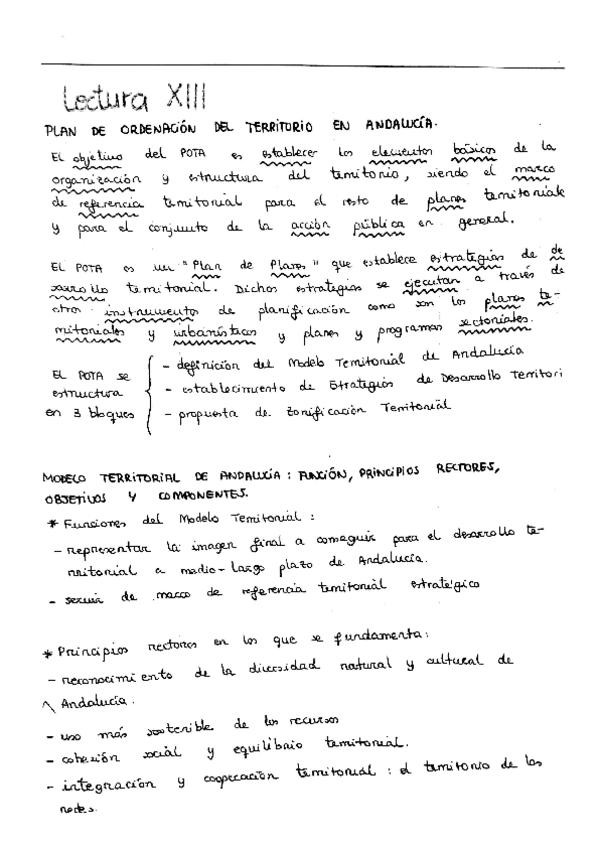 Lectura XIII
PLAN DE ORDENACIÓN DEL TERRITORIO EN ANDALUCÍA.
EL objetivo del POTA es establecer los elementos básicos de la
organización y estructura del territorio, siendo el marco
de referencia territorial para el resto de planes territoriale
y para el conjunto de la acción pública en general.
EL POTA es un "Plan de Planes" que establece estrategias de de
sarrollo territorial. Dichas estrategias se ejecutan a través de
otros instrumentos de planificación como son los planes te-
rritoriales y urbanísticos y planes y programas sectoriales.
EL POTA se
estructura
en 3 bloques
- definición del Modelo Territorial de Andalucía
- establecimiento de Estrategias de Desarrollo Territori
- propuesta de Zonificación Territorial
MODELO TERRITORIAL DE ANDALUCÍA : FUNCIÓN, PRINCIPIOS RECTORES,
OBJETIVOS Y COMPONENTES.
* Funciones del Modelo Territorial :
- representar la imagen final a conseguir para el desarrollo te-
rritorial a medio-largo plazo de Andalucía.
- servir de marco de referencia territorial estratégico
* Principios rectores en los que se fundamenta:
- reconocimiento de la diversidad natural y cultural de
Andalucía.
- uso más sostenible de los recursos
- cohesión social y equilibrio territorial.
- integración y cooperación territorial : el territorio de las
redes.